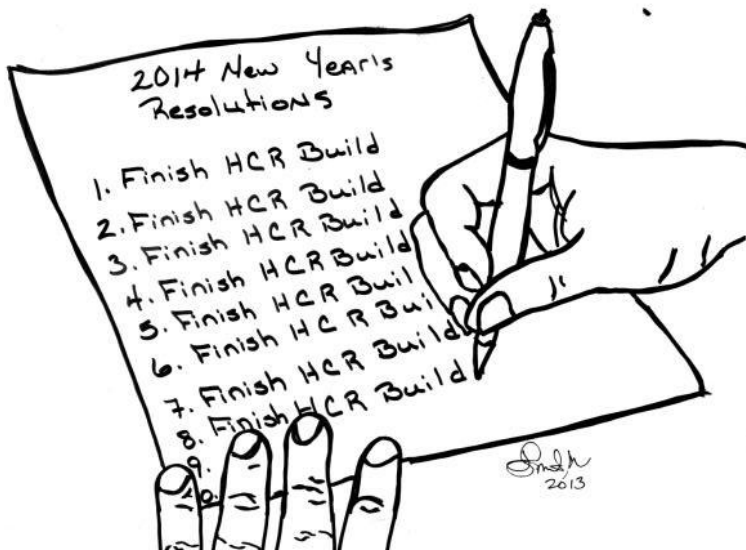 2014 New Year's
Resolutions
1. Finish HCR Build
2. Finish HCR Build
3. Finish HCR Build
4. Finish HCR Build
5. Finish HCR Buil
6. Finish HCR Bui
7. Finish HCR Build
8. Finish HCR Build
9.
2013